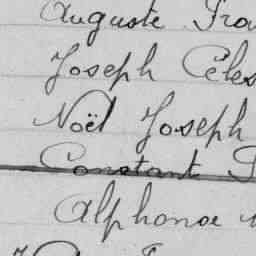 Auguste
Joseph
Noël Joseph
Constant
Alphonse